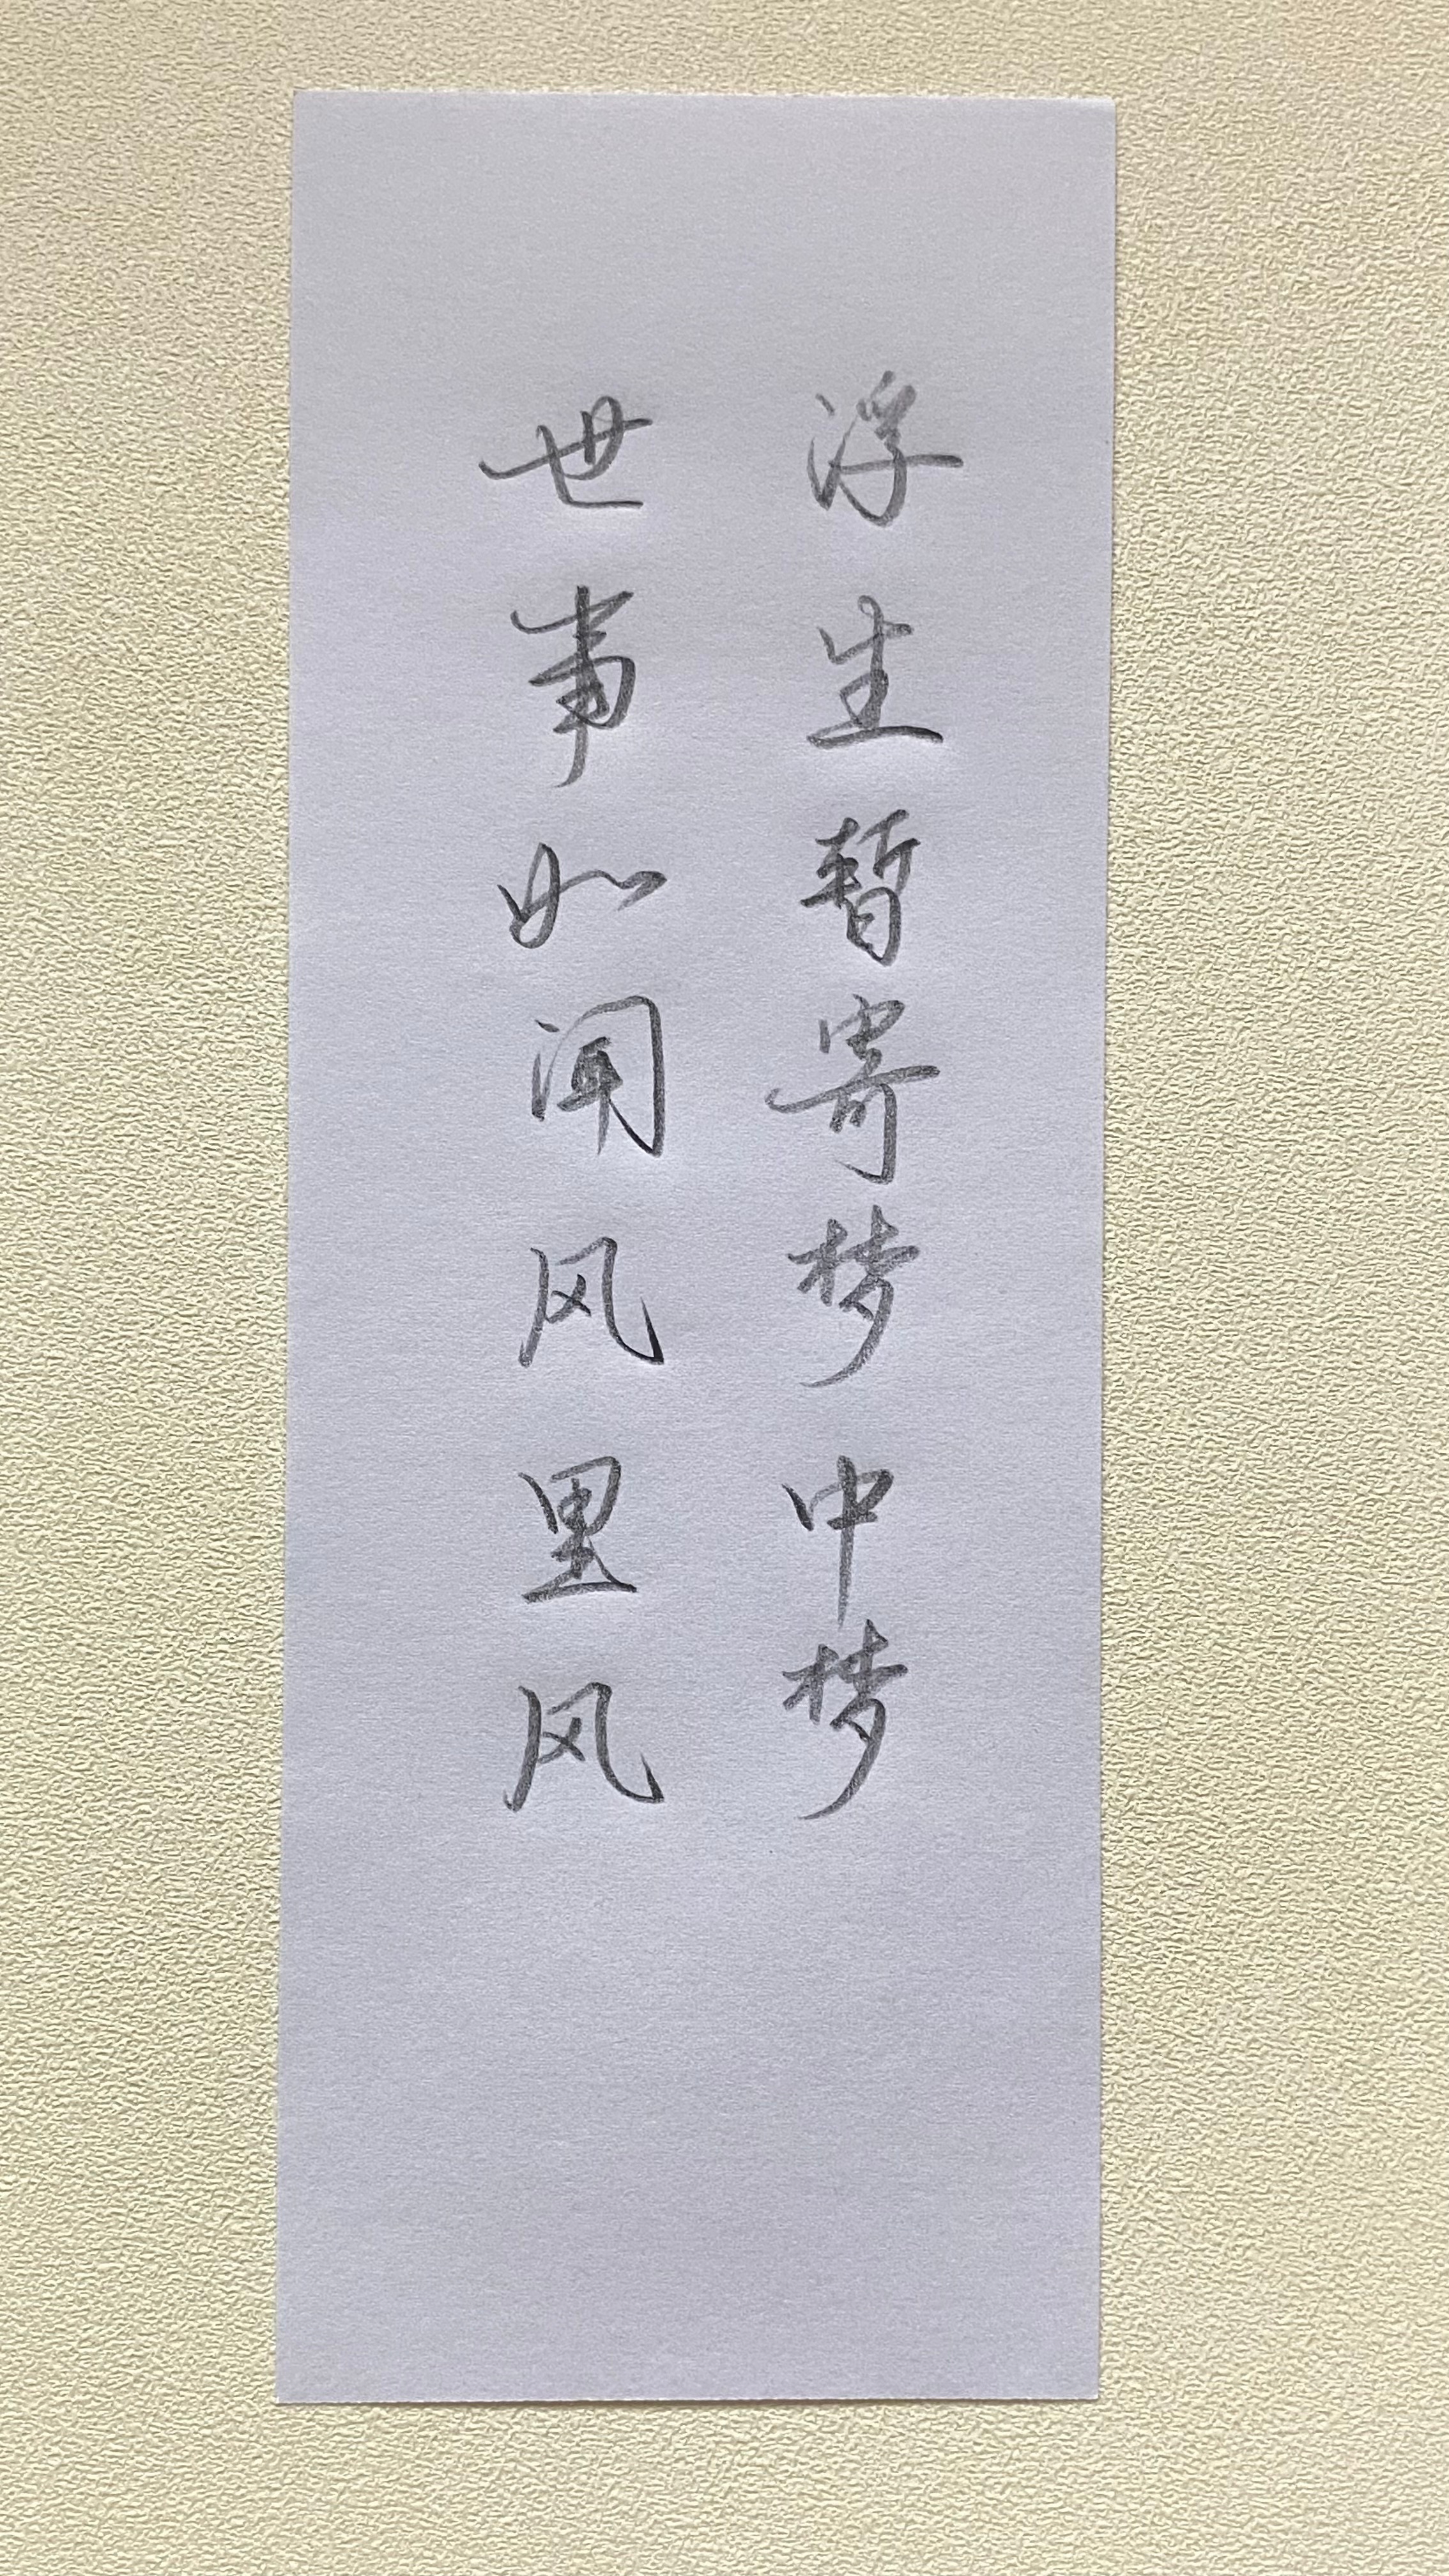 浮生暂寄梦中梦
世事如闻风里风